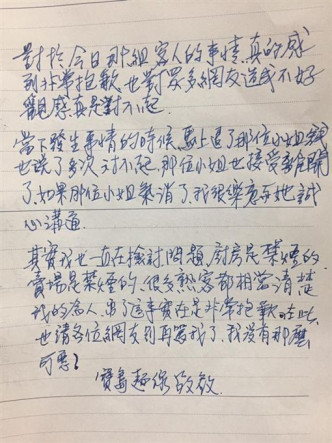 對於今日那組客人的事情,真的感
到非常抱歉,也對眾多網友造成不好
觀感,真是對不起.
當下發生事情的時候,馬上退了那位小姐錢
也說了多次对不起,那位小姐也接受辱罵
了,如果那位小姐氣消了,我很樂意與她誠
心溝通.
其實我也一直在檢討問題,廚房是禁煙的
賣場是禁煙的,很多熟客都相當清楚
我的為人.出了這事實在是非常抱歉,在此
也請各位網友別再罵我了,我沒有那麼
可惡?
敬啟